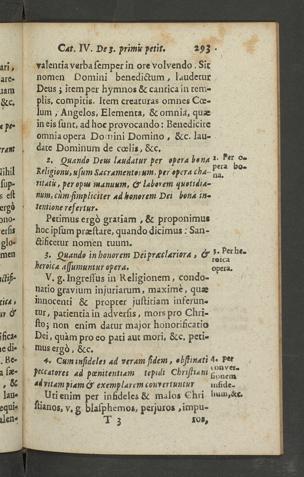 Cat. IV. De 3. primis petit. 293
valentia verba semper in ore volvendo. Sit
nomen Domini benedictum, laudetur
Deus; item per hymnos & cantica in tem-
plis, compitis. Item creaturas omnes Cœ-
lum, Angelos, Elementa, & omnia, quæ
in eis sunt, ad hoc provocando: Benedicite
omnia opera Domini Domino, &c. lau-
date Dominum de cœlis, &c.
2. Quando Deus laudatur per opera bona
Religionu, usum Sacramentorum, per opera cha-
ritatu, per opus manuum, & laborem quotidia-
num, cùm simpliciter ad honorem Dei bona in-
tentione refertur.
2. Per o-
pera bo-
na.
Petimus ergò gratiam, & proponimus
hoc ipsum præstare, quando dicimus: San-
ctificetur nomen tuum.
3. Quando in honorem Dei præclariora, &
heroica assumuntur opera.
3. Per he-
roica
opera.
V. g. Ingressus in Religionem, condo-
natio gravium injuriarum, maximè, quæ
innocenti & propter justitiam inferun-
tur, patientia in adversis, mors pro Chri-
sto; non enim datur major honorificatio
Dei, quàm pro eo pati aut mori, &c. peti-
mus ergò, &c.
4. Cum infideles ad veram fidem, obstinati
peccatores ad pœnitentiam tepidi Christiani
ad vitam piam & exemplarem convertuntur
4. Per
conver-
sionem
infide-
lium, &c.
Uti enim per infideles & malos Chri
stianos, v. g blasphemos, perjuros, impu-
T 3
ros,